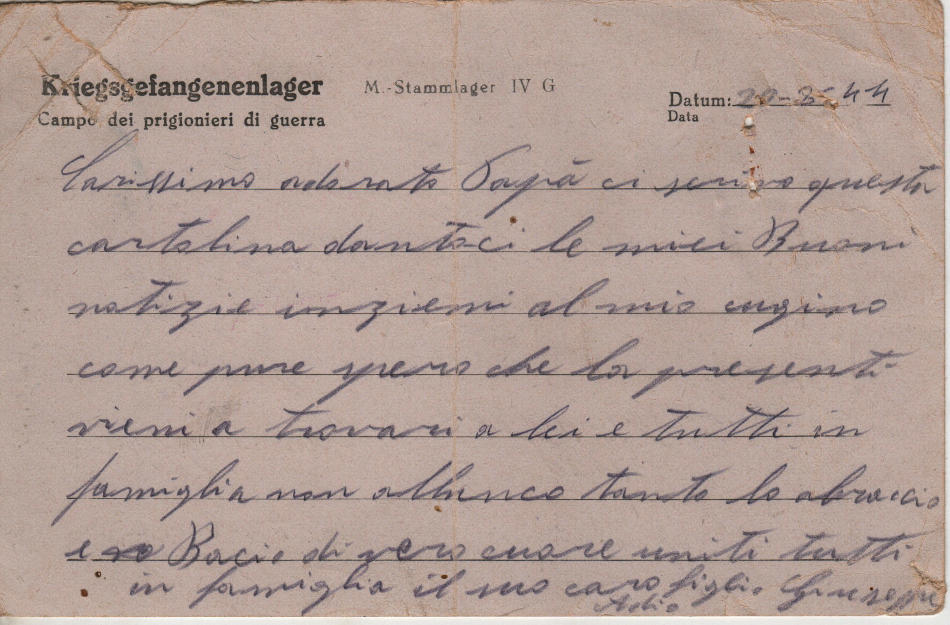 Kriegsgefangenenlager M.-Stammlager IV G
Campo dei prigionieri di guerra
Datum: 29-3-44
Data
Carissimo adorato Papà ci scrivo questa
cartolina dantoci le miei Buoni
notizie inziemi al mio cugino
come pure spero che la presenti
vieni a trovari a lei e tutti in
famiglia non allunco tanto lo abraccio
e Bacio di vero cuore uniti tutti
in famiglia il suo caro figlio Giuseppe
Adio